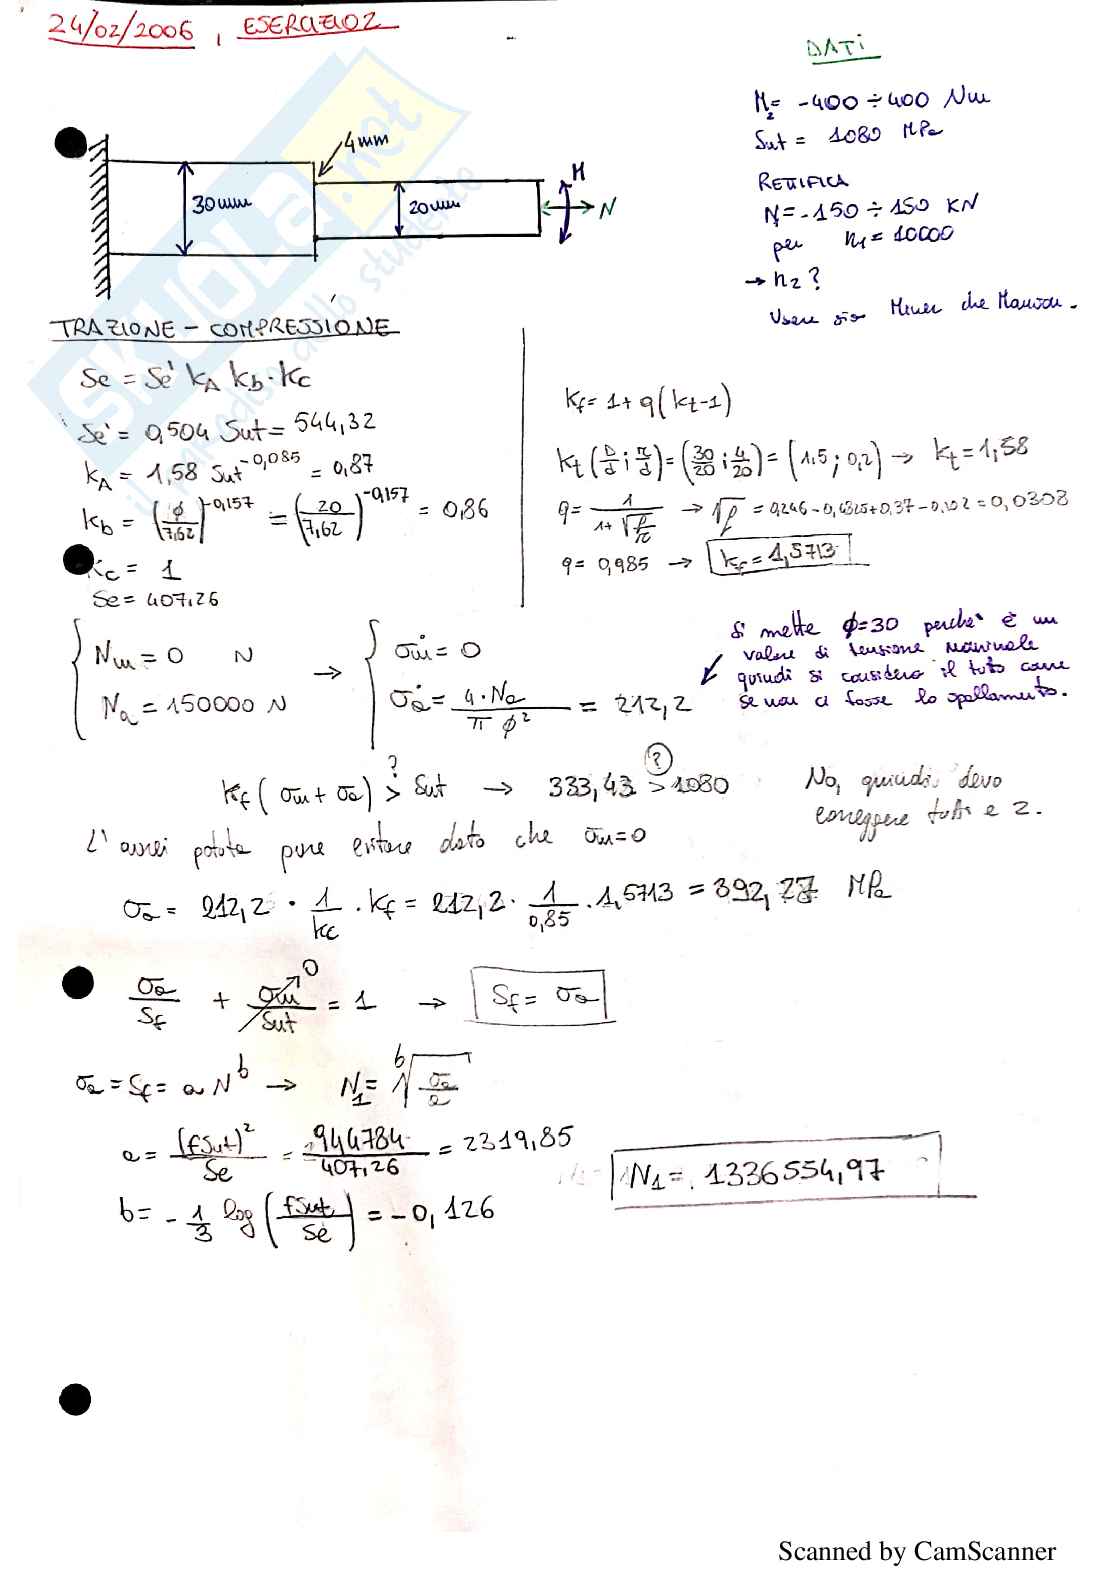 24/02/2006, ESERCIZIO 2
DATI
M₂= -400 ÷ 400 Nm
Sut = 1080 MPa
RETTIFICA
N₁= -150 ÷ 150 KN
per n₁ = 10000
→ n₂?
Usare sia Miner che Manson.
4mm
30mm
20mm
M
N
TRAZIONE - COMPRESSIONE
Se = Se' kA kb · kc
Se' = 0,504 Sut = 544,32
kA = 1,58 Sut^-0,085 = 0,87
kb = (ϕ/7,62)^-0,157 = (20/7,62)^-0,157 = 0,86
kc = 1
Se = 407,26
kf = 1 + q(kt-1)
kt(D/d ; r/d) = (30/20 ; 4/20) = (1,5 ; 0,2) → kt = 1,58
q = 1/(1+√(ρ/r)) → √ρ = 0,246 - 0,4325 + 0,37 - 0,102 = 0,0308
q = 0,985 → kf = 1,5713
Nm = 0 N → σm° = 0
Na = 150000 N σa° = 4·Na/(π ϕ²) = 212,2
Si mette ϕ=30 perchè è un
valore di tensione nominale
quindi si considera il tutto come
se non ci fosse lo spallamento.
kf (σm + σa) >? Sut → 333,43 >(?) 1080
No, quindi devo
correggere tutti e 2.
L'avrei potuto pure evitare dato che σm=0
σa = 212,2 · 1/kc · kf = 212,2 · 1/0,85 · 1,5713 = 392,27 MPa
σa/Sf + σm/Sut = 1 → Sf = σa
0
σa = Sf = a N^b → N₁ = ᵇ√(σa/a)
a = (f Sut)²/Se = 944784/407,26 = 2319,85
N₁ = 1336554,97
b = -1/3 log (f Sut/Se) = -0,126
SKUOLA.net
il paradiso dello studente
Scanned by CamScanner